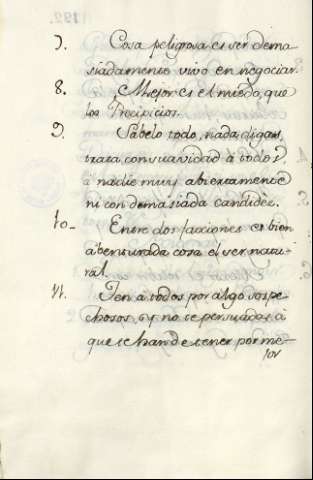 7. Cosa peligrosa es ser dema
siadamente vivo en negociar.
8. Mejor es el miedo, que
los Precipicios.
9. Sabelo todo, nada digas,
trata con suavidad à todos,
à nadie muy abiertamente
ni con demasiada candidèz.
10- Entre dos facciones es bien
abenturada cosa el ser natu-
ràl.
11. Ten à todos por algo sospe-
chosos, y no te persuadas à
que te han de tener por me-
jor